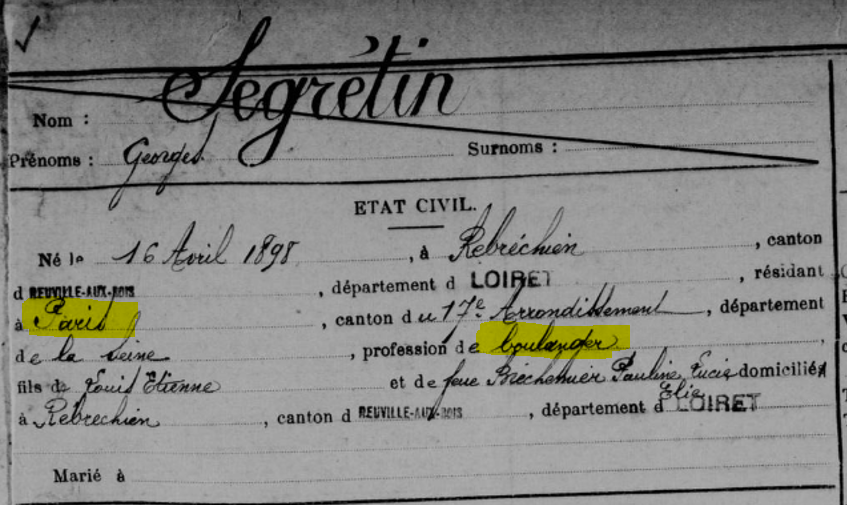 Nom : Segrétin
Prénoms : Georges Surnoms :
ETAT CIVIL.
Né le 16 Avril 1898, à Rebréchien, canton
d NEUVILLE-AUX-BOIS, département d LOIRET, résidant
à Paris, canton du 17e Arrondissement, département
de la Seine, profession de boulanger,
fils de Louis Etienne et de feue Bréchemier Pauline Lucie domiciliés
Elise
à Rebrechien, canton d NEUVILLE-AUX-BOIS, département d LOIRET
Marié à